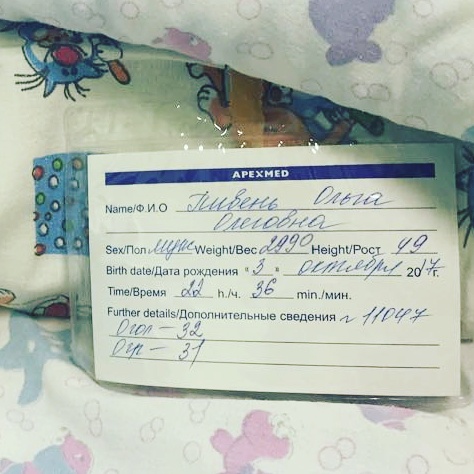 APEXMED
Name/Ф.И.О Пивень Ольга
Олеговна
Sex/Пол муж Weight/Вес 2990 Height/Рост 49
Birth date/Дата рождения «3» октября 2017г.
Time/Время 22 h./ч. 36 min./мин.
Further details/Дополнительные сведения 11047
Огол – 32
Огр – 31